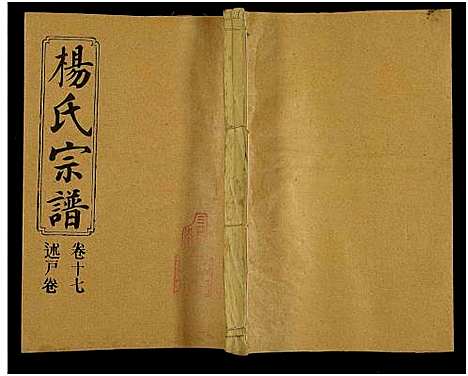 楊氏宗譜
卷十七
述戶卷